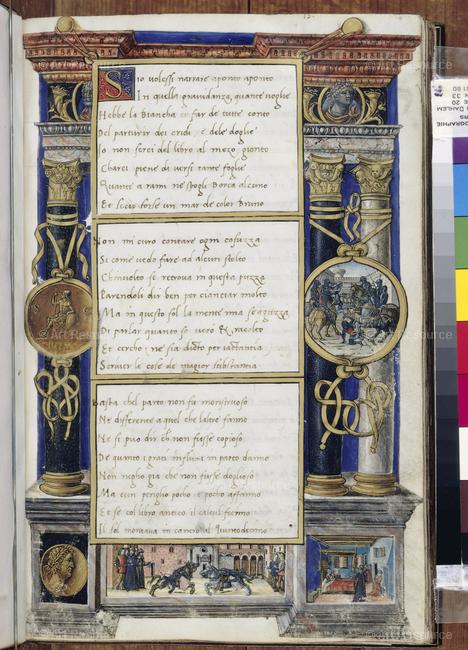 S io volessi narrare aponto aponto
In quella gravidanza, quante voglie
Hebbe la Biancha et far de tutte conto
Del parturir dei cridi, e dele doglie
Io non serei del libro al mezo gionto
Charei piene di versi tante foglie
Quante a rami ne spogli Borea alcuno
Et seccio forse un mar de color Bruno
Non mi curo contare ogni cosuzza
Si come vedo fare ad alcun stolto
se retrova in questa puzza
dir ben per cianciar molto
Ma in questo sol la mente mia
De parlar quanto so vero & racolto
Et cercho, ne sia dicto per iactantia
Scriver le cose de magior substantia
Basta chel parto non fu monstruoso
Ne differente a quel che laltre fanno
Ne si puo dir ch non fusse copioso
De quanto i graci influxi in parto danno
Non negho gia che non fusse doglioso
Ma cum periglio pocho e pocho affanno
Et se col libro antico il calcul fermo
Il sol montava in cancro al quintodecimo
Art Resource